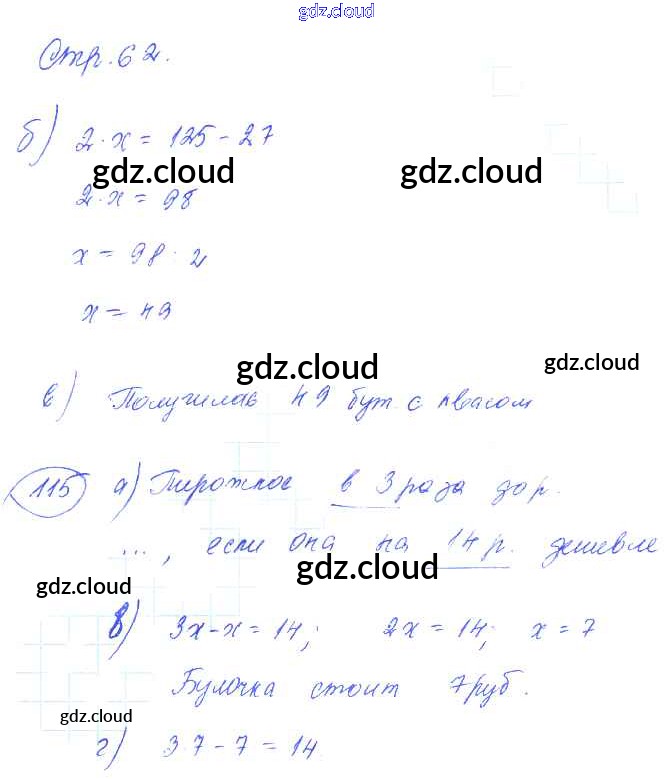 gdz.cloud
Стр. 62.
б) 2·x = 125 - 27
gdz.cloud gdz.cloud
2·x = 98
x = 98 : 2
x = 49
gdz.cloud gdz.cloud
в) Получилось 49 бут. с квасом
115 а) Пирожное в 3 раза дор.
..., если она на 14 р. дешевле
gdz.cloud gdz.cloud
в) 3x - x = 14; 2x = 14; x = 7
Булочка стоит 7 руб.
gdz.cloud gdz.cloud
г) 3·7 - 7 = 14